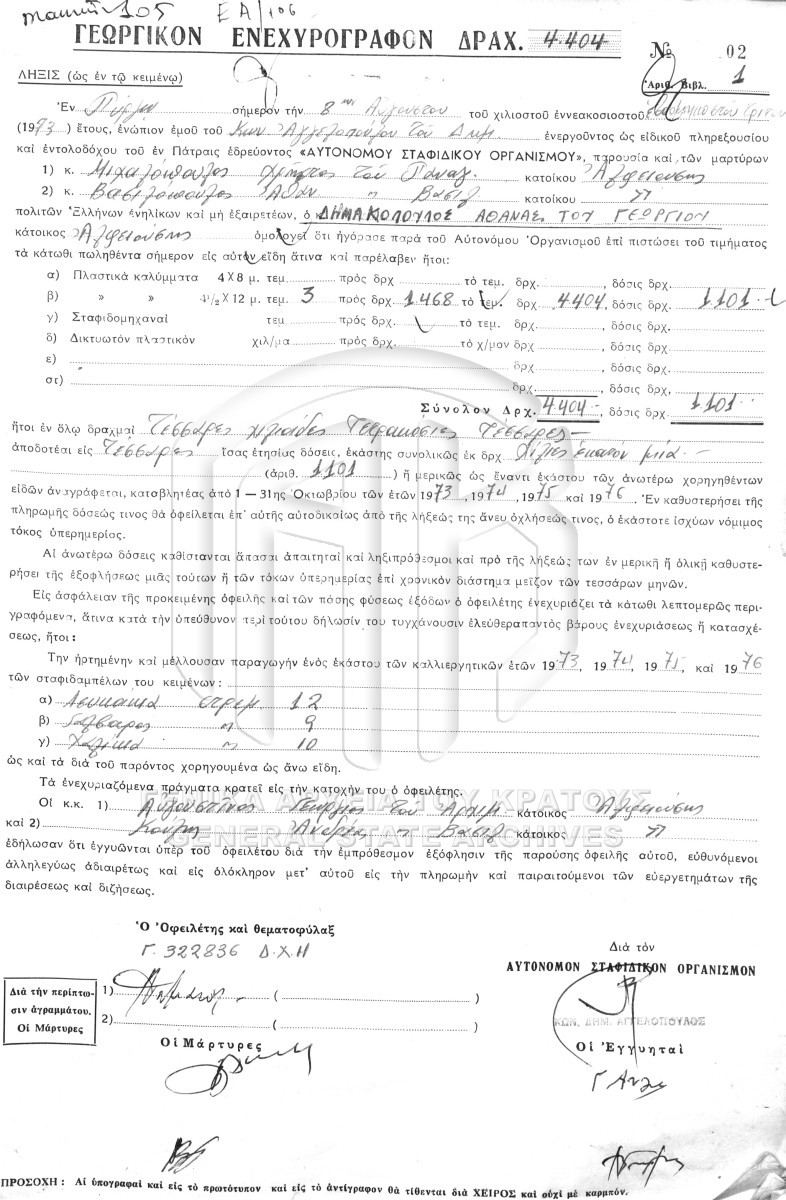 105 ΕΑ/106
ΓΕΩΡΓΙΚΟΝ ΕΝΕΧΥΡΟΓΡΑΦΟΝ ΔΡΑΧ. 4.404
№ 02
ΛΗΞΙΣ (ὡς ἐν τῷ κειμένῳ) Ἀριθ. Βιβλ. 1
Ἐν Πύργῳ σήμερον τὴν 8 Αὐγούστου τοῦ χιλιοστοῦ ἐννεακοσιοστοῦ
(1973) ἔτους, ἐνώπιον ἐμοῦ τοῦ Κων Ἀγγελοπούλου τοῦ Δημ ἐνεργοῦντος ὡς εἰδικοῦ πληρεξουσίου
καὶ ἐντολοδόχου τοῦ ἐν Πάτραις ἑδρεύοντος «ΑΥΤΟΝΟΜΟΥ ΣΤΑΦΙΔΙΚΟΥ ΟΡΓΑΝΙΣΜΟΥ», παρουσία καὶ τῶν μαρτύρων
1) κ. Μιχαλόπουλος Χρῆστος τοῦ Παναγ. κατοίκου Ἀλφειούσης
2) κ. Βασιλόπουλος Ἀθαν " Βασιλ κατοίκου "
πολιτῶν Ἑλλήνων ἐνηλίκων καὶ μὴ ἐξαιρετέων, ὁ κ. ΔΗΜΑΚΟΠΟΥΛΟΣ ΑΘΑΝΑΣ. ΤΟΥ ΓΕΩΡΓΙΟΥ
κάτοικος Ἀλφειούσης ὁμολογεῖ ὅτι ἠγόρασε παρὰ τοῦ Αὐτονόμου Ὀργανισμοῦ ἐπὶ πιστώσει τοῦ τιμήματος
τὰ κάτωθι πωληθέντα σήμερον εἰς αὐτὸν εἴδη ἅτινα καὶ παρέλαβεν ἤτοι:
α) Πλαστικὰ καλύμματα 4Χ8 μ. τεμ. πρὸς δρχ τὸ τεμ. δρχ. , δόσις δρχ.
β) » » 4½Χ12 μ. τεμ. 3 πρὸς δρχ. 1.468 τὸ τεμ. δρχ. 4404, δόσις δρχ. 1101
γ) Σταφιδομηχαναὶ τεμ πρὸς δρχ. τὸ τεμ. δρχ. , δόσις δρχ.
δ) Δικτυωτὸν πλαστικὸν χιλ/μα πρὸς δρχ. τὸ χ/μον δρχ. , δόσις δρχ.
ε) δρχ. , δόσις δρχ.
στ) δρχ. , δόσις δρχ.
Σύνολον Δρχ. 4.404, δόσις δρχ. 1101
ἤτοι ἐν ὅλῳ δραχμαὶ Τέσσαρες χιλιάδες Τετρακόσιες Τέσσαρες
ἀποδοτέαι εἰς Τέσσαρες ἴσας ἐτησίας δόσεις, ἑκάστης συνολικῶς ἐκ δρχ Χίλιες ἑκατὸν μία
(ἀριθ. 1101) ἢ μερικῶς ὡς ἔναντι ἑκάστου τῶν ἀνωτέρω χορηγηθέντων
εἰδῶν ἀναγράφεται, καταβλητέας ἀπὸ 1—31ης Ὀκτωβρίου τῶν ἐτῶν 1973, 1974, 1975 καὶ 1976. Ἐν καθυστερήσει τῆς
πληρωμῆς δόσεώς τινος θὰ ὀφείλεται ἐπ' αὐτῆς αὐτοδικαίως ἀπὸ τῆς λήξεώς της ἄνευ ὀχλήσεώς τινος, ὁ ἑκάστοτε ἰσχύων νόμιμος
τόκος ὑπερημερίας.
Αἱ ἀνωτέρω δόσεις καθίστανται ἅπασαι ἀπαιτηταὶ καὶ ληξιπρόθεσμοι καὶ πρὸ τῆς λήξεώς των ἐν μερικῇ ἢ ὁλικῇ καθυστε-
ρήσει τῆς ἐξοφλήσεως μιᾶς τούτων ἢ τῶν τόκων ὑπερημερίας ἐπὶ χρονικὸν διάστημα μεῖζον τῶν τεσσάρων μηνῶν.
Εἰς ἀσφάλειαν τῆς προκειμένης ὀφειλῆς καὶ τῶν πάσης φύσεως ἐξόδων ὁ ὀφειλέτης ἐνεχυριάζει τὰ κάτωθι λεπτομερῶς περι-
γραφόμενα, ἅτινα κατὰ τὴν ὑπεύθυνον περὶ τούτου δήλωσίν του τυγχάνουσιν ἐλεύθερα παντὸς βάρους ἐνεχυριάσεως ἢ κατασχέ-
σεως, ἤτοι:
Τὴν ἠρτημένην καὶ μέλλουσαν παραγωγὴν ἑνὸς ἑκάστου τῶν καλλιεργητικῶν ἐτῶν 1973, 1974, 1975, καὶ 1976
τῶν σταφιδαμπέλων του κειμένων:
α) στρεμ 12
β) " 9
γ) " 10
ὡς καὶ τὰ διὰ τοῦ παρόντος χορηγουμένα ὡς ἄνω εἴδη.
Τὰ ἐνεχυριαζόμενα πράγματα κρατεῖ εἰς τὴν κατοχήν του ὁ ὀφειλέτης.
ΓΕΝΙΚΑ ΑΡΧΕΙΑ ΤΟΥ ΚΡΑΤΟΥΣ
Οἱ κ.κ. 1) Αὐγουστῖνος Γεώργιος τοῦ κάτοικος Ἀλφειούσης
καὶ 2) Ἀνδρέας " Βασιλ κάτοικος "
GENERAL STATE ARCHIVES
ἐδήλωσαν ὅτι ἐγγυῶνται ὑπὲρ τοῦ ὀφειλέτου διὰ τὴν ἐμπρόθεσμον ἐξόφλησιν τῆς παρούσης ὀφειλῆς αὐτοῦ, εὐθυνόμενοι
ἀλληλεγγύως ἀδιαιρέτως καὶ εἰς ὁλόκληρον μετ' αὐτοῦ εἰς τὴν πληρωμὴν καὶ παραιτούμενοι τῶν εὐεργετημάτων τῆς
διαιρέσεως καὶ διζήσεως.
Ὁ Ὀφειλέτης καὶ θεματοφύλαξ
Γ. 322836 Δ.Χ.Η
Διὰ τὸν
ΑΥΤΟΝΟΜΟΝ ΣΤΑΦΙΔΙΚΟΝ ΟΡΓΑΝΙΣΜΟΝ
Διὰ τὴν περίπτω-
σιν ἀγραμμάτου.
Οἱ Μάρτυρες
1) ( )
2) ( )
ΚΩΝ. ΔΗΜ. ΑΓΓΕΛΟΠΟΥΛΟΣ
Οἱ Μάρτυρες
Οἱ Ἐγγυηταὶ
ΠΡΟΣΟΧΗ: Αἱ ὑπογραφαὶ καὶ εἰς τὸ πρωτότυπον καὶ εἰς τὸ ἀντίγραφον θὰ τίθενται διὰ ΧΕΙΡΟΣ καὶ οὐχὶ μὲ καρμπόν.